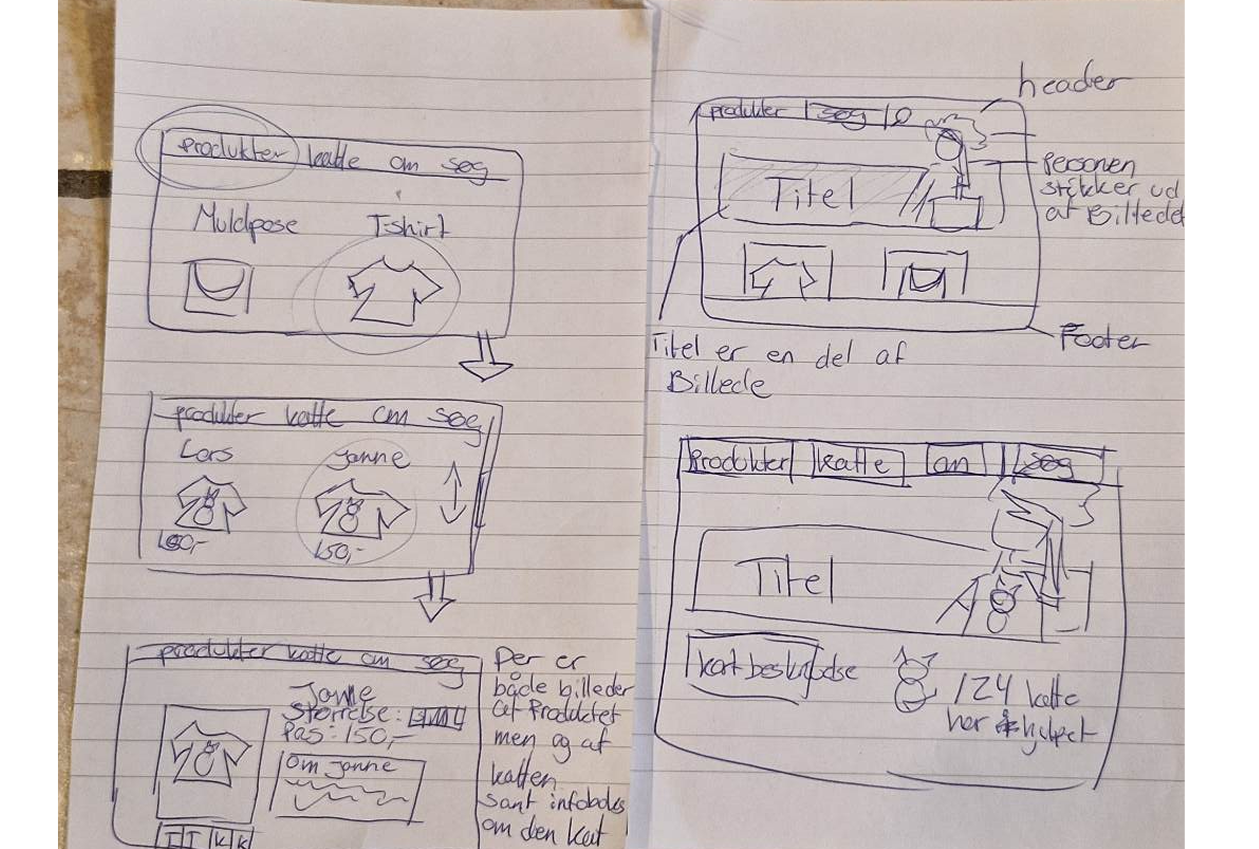 produkter katte om søg
Muldpose T-shirt
produkter katte om søg
Lars Janne
150,-
produkter katte om søg
Janne
Størrelse:
Pas: 150,-
Om Janne
Per er
både billeder
af Produktet
men og af
katten
samt infoboks
om den kat
header
produkter søg
Titel
Personen
stikker ud
af Billedet
Footer
Titel er en del af
Billede
Produkter katte om søg
Titel
kort beskrivelse
124 katte
har hjulpet